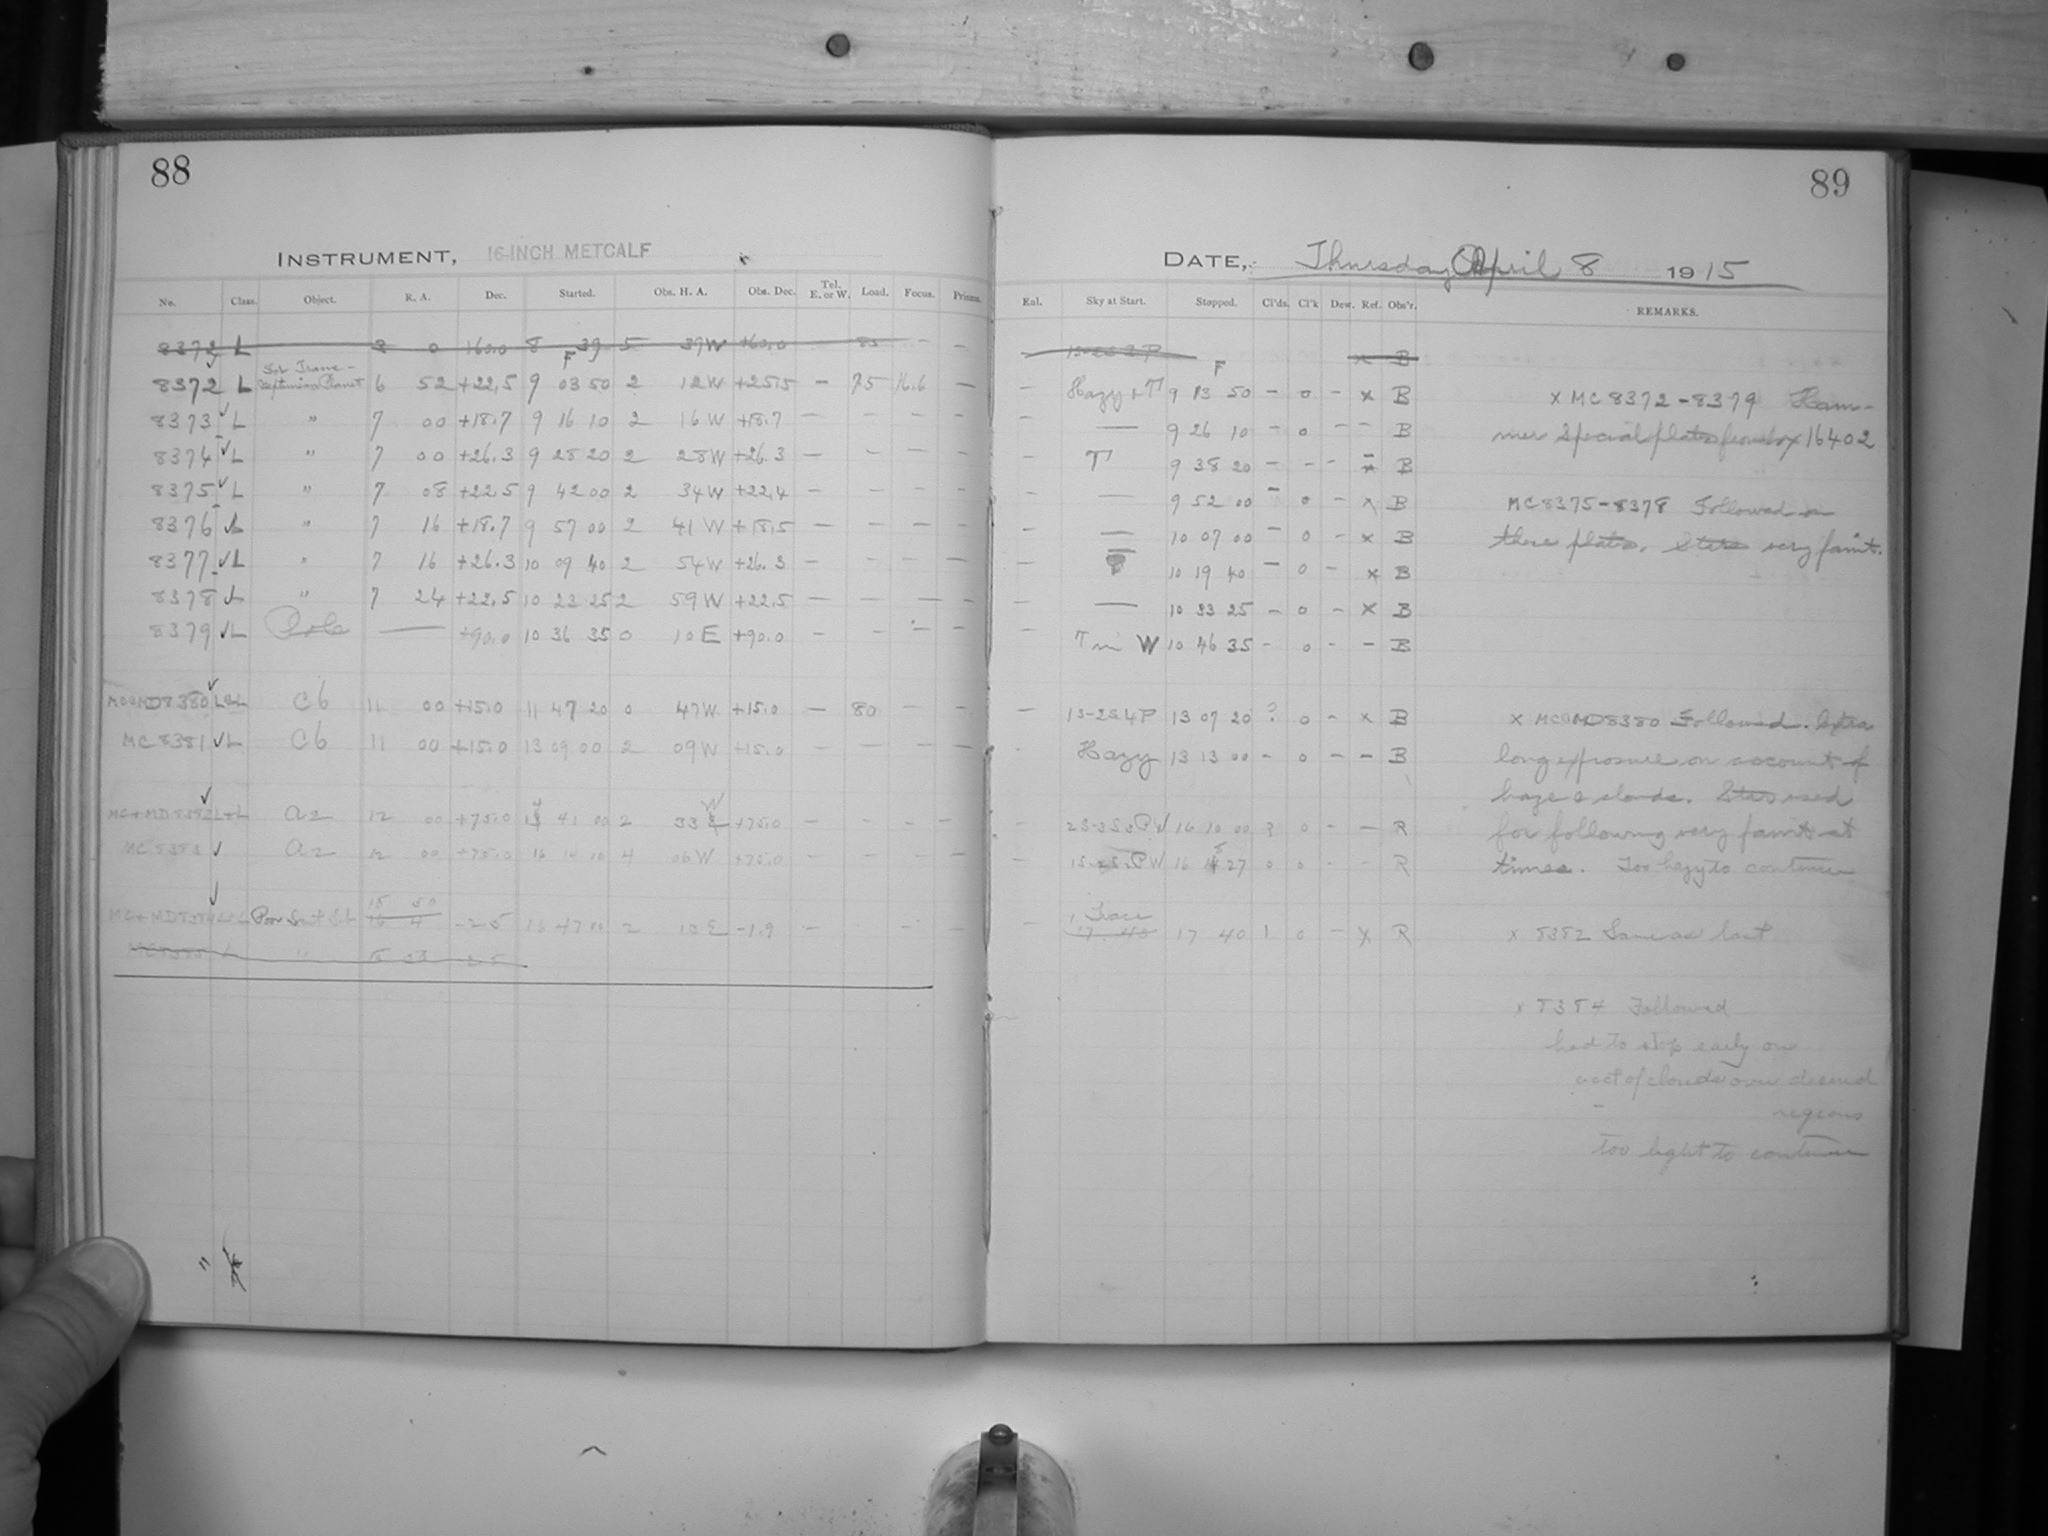 88
INSTRUMENT, 16-INCH METCALF
No. Class. Object. R. A. Dec. Started. Obs. H. A. Obs. Dec. Tel. E. or W. Load. Focus. Prisms.
8372 L 8 0 +60.0 8 39 5 37W +60.0 — —
8372 L 6 52 +22.5 9 03 50 2 12W +25.5 — 75 16.6 —
8373 L " 7 00 +18.7 9 16 10 2 16W +18.7 — — — —
8374 L " 7 00 +26.3 9 28 20 2 28W +26.3 — — — —
8375 L " 7 08 +22.5 9 42 00 2 34W +22.4 — — — —
8376 L " 7 16 +18.7 9 57 00 2 41W +18.5 — — — —
8377 L " 7 16 +26.3 10 09 40 2 54W +26.3 — — — —
8378 L " 7 24 +22.5 10 23 25 2 59W +22.5 — — — —
8379 L Pole — +90.0 10 36 35 0 10E +90.0 — — — —
MC&MD8380 L&L C6 11 00 +15.0 11 47 20 0 47W +15.0 — 80 — —
MC8381 L C6 11 00 +15.0 13 09 00 2 09W +15.0 — — — —
MC+MD8382 L+L A2 12 00 +75.0 41 00 2 33 W +75.0 — — — —
MC8383 A2 12 00 +75.0 16 14 10 4 06W +75.0 — — — —
18 50
MC+MD8384 -2.5 16 47 00 2 10E -1.9 — — —
MC8385 L "
89
DATE, Thursday April 8 1915
Eal. Sky at Start. Stopped. Cl'ds. Cl'k Dew. Ref. Obs'r. REMARKS.
1S-2S3P x B
— Hazy + T F 9 13 50 — 0 — x B
— — 9 26 10 — 0 — — B
— T 9 38 20 — — — x B
— — 9 52 00 — 0 — x B
— — 10 07 00 — 0 — x B
— 10 19 40 — 0 — x B
— — 10 33 25 — 0 — x B
— T in W 10 46 35 — 0 — — B
— 1S-2S4P 13 07 20 ? 0 — x B
Hazy 13 13 00 — 0 — — B
— 2S-3S3PW 16 10 00 ? 0 — — R
— 16 27 0 0 — — R
— 1 Trace 17 40 1 0 — x R
x MC8372-8379 Ham-
mer Special plates from box 16402
MC8375-8378 Followed on
these plates. Stars very faint.
x MC&MD8380 Followed. Extra
long exposure on account of
haze & clouds. Stars used
for following very faint at
times. Too hazy to continue
x 8382 Same as last
x 8384 Followed
had to stop early on
acct of clouds over desired
regions
too light to continue